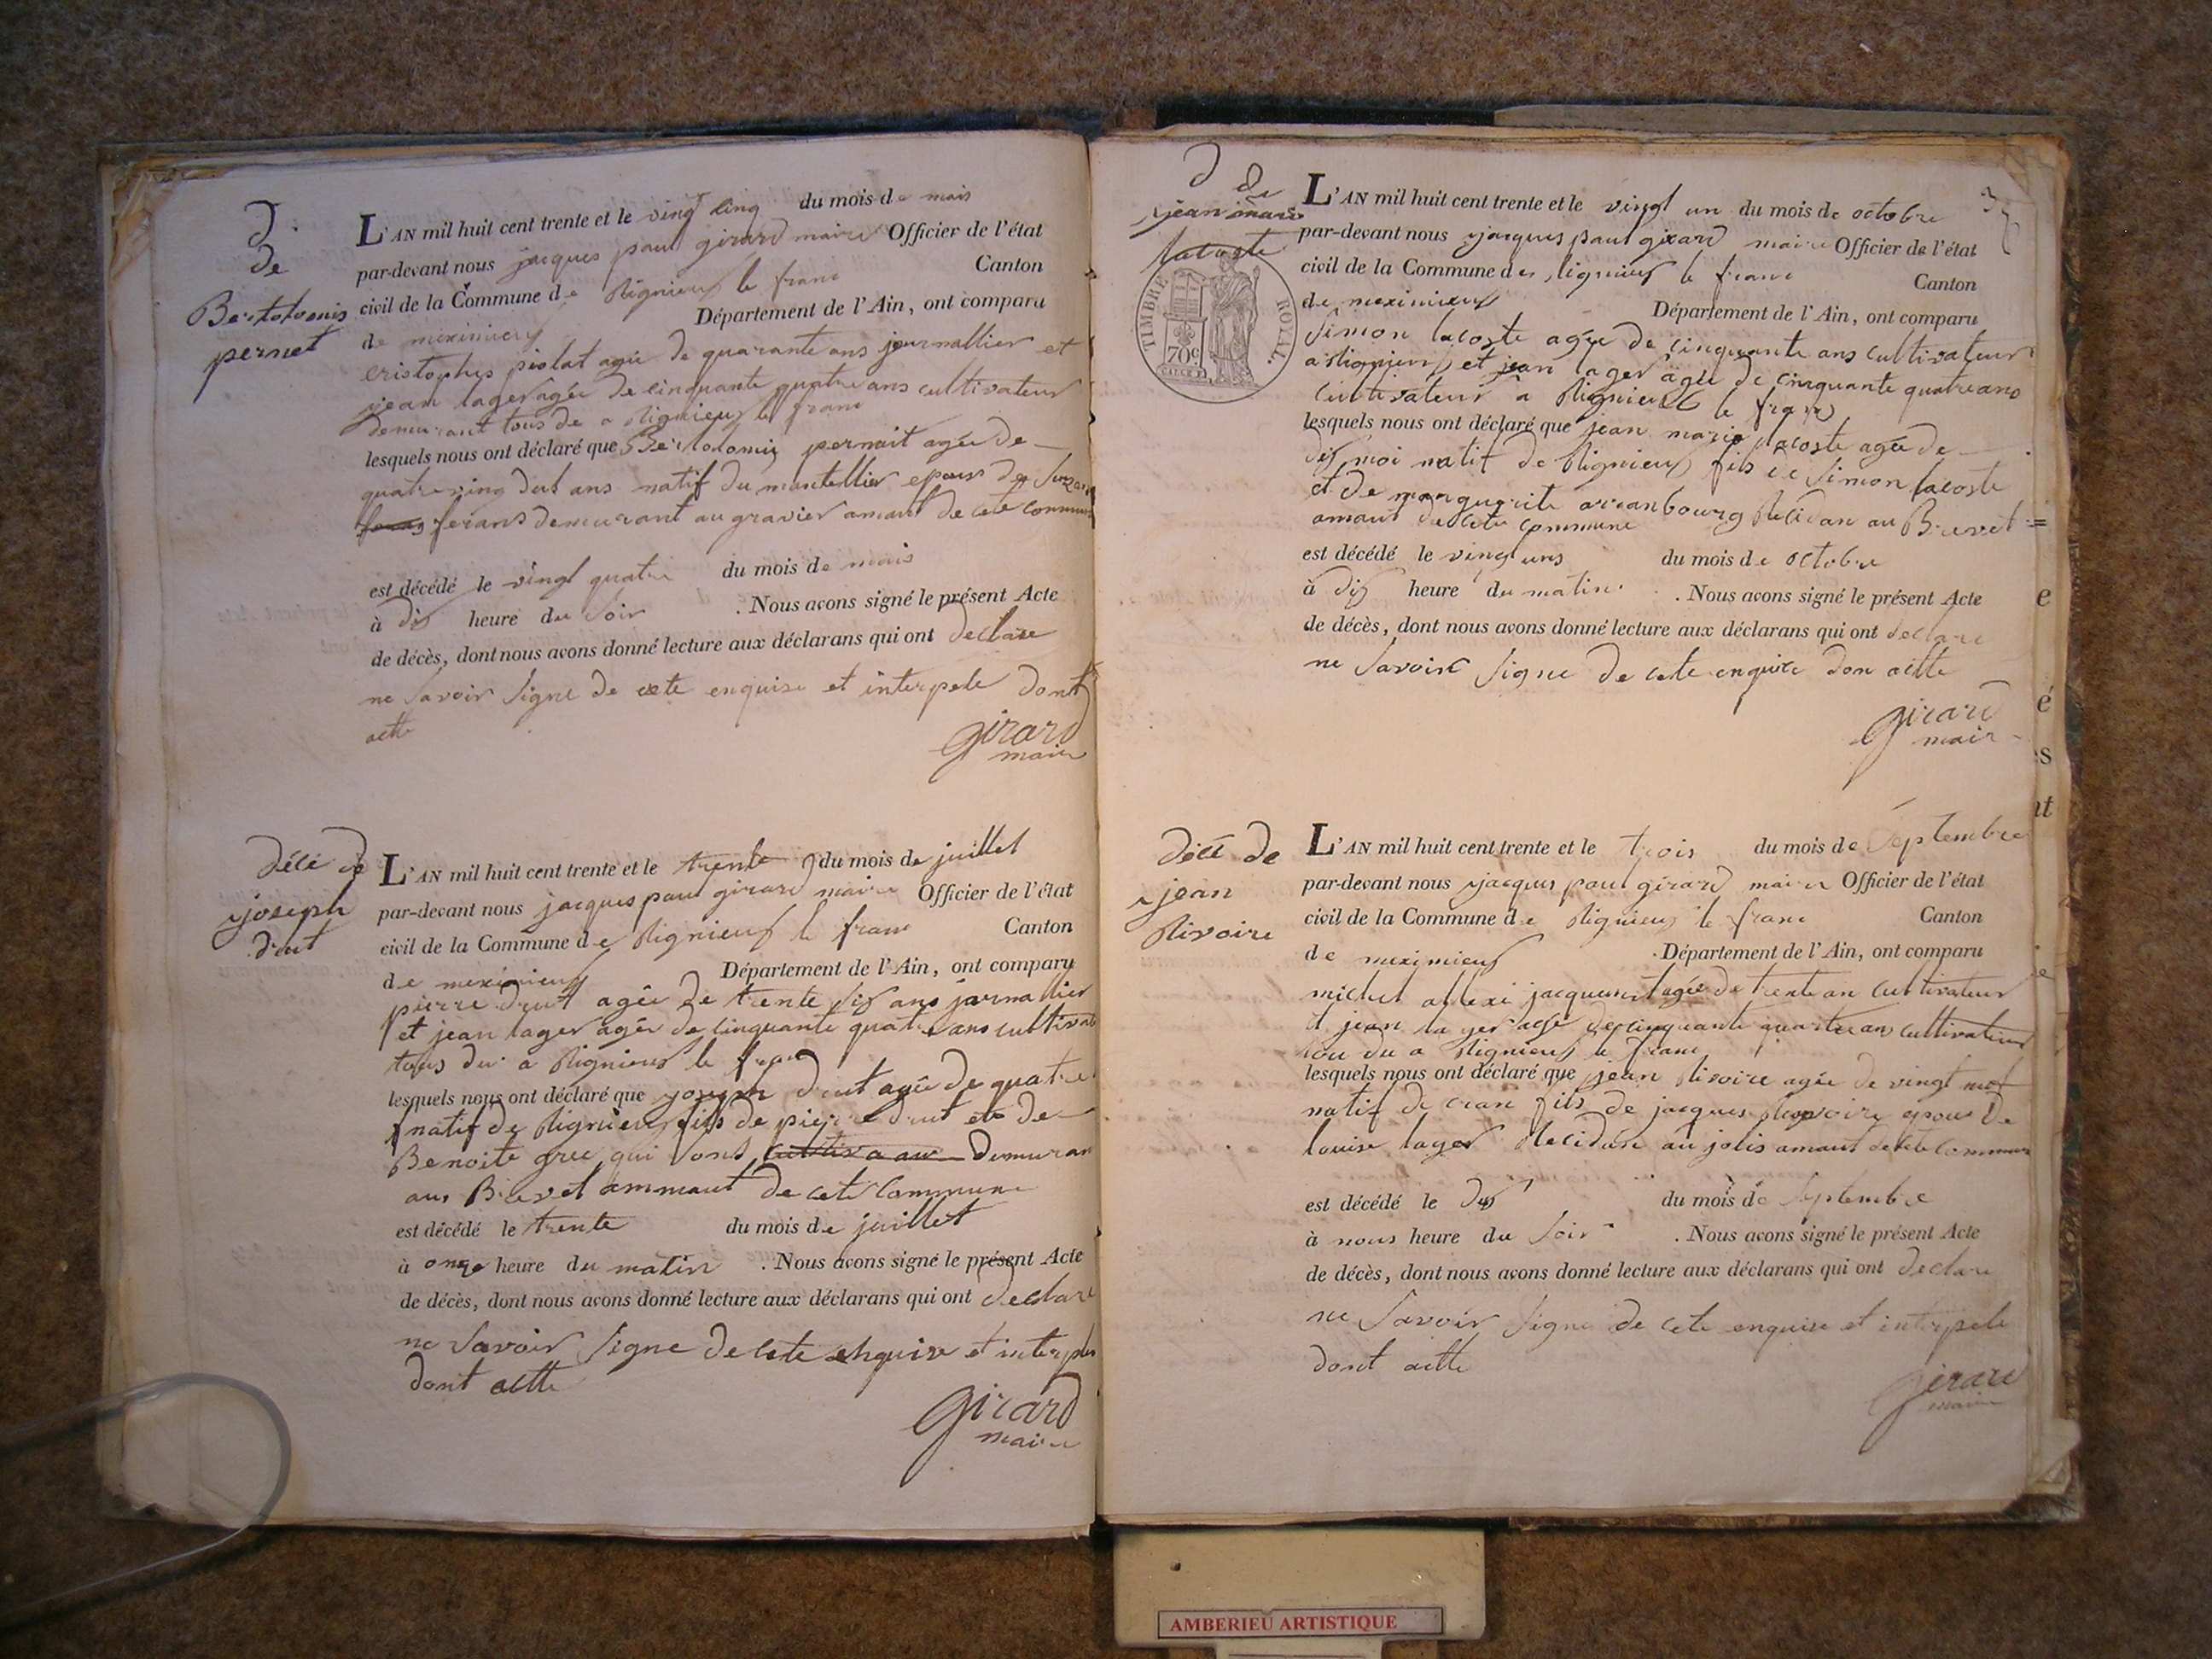 D.
de
Bertolomis
pernet
L'AN mil huit cent trente et le vingt cinq du mois de mais
par-devant nous jacques paul girard maire Officier de l'état
civil de la Commune de Rignieux le franc Canton
de meximieux Département de l'Ain, ont comparu
cristophes piolat agée de quarante ans journallier et
jean lager agée de cinquante quatre ans cultivateur
demurant tous de a Rignieux le franc
lesquels nous ont déclaré que Bertolomis pernait agée de
quatre ving ans natif du montellier epous de
ferans demurant au gravier amaut de cete commune
est décédé le vingt quatre du mois de mais
à dix heure du soir . Nous avons signé le présent Acte
de décès, dont nous avons donné lecture aux déclarans qui ont declare
ne savoir signe de cete enquise et interpele dont
actte
girard
maire
décé de
joseph
drut
L'AN mil huit cent trente et le trente du mois de juillet
par-devant nous jacques paul girard maire Officier de l'état
civil de la Commune de Rignieux le franc Canton
de meximieux Département de l'Ain, ont comparu
pierre drut agée de trente six ans jornallier
et jean lager agée de cinquante quatre ans cultivat
tous du a Rignieux le franc
lesquels nous ont déclaré que joseph drut agée de quatre
natif de Rignieux fils de pierre drut et de
Benoite grec qui sons demuran
aus Brevet ammaut de cete commune
est décédé le trente du mois de juillet
à onze heure du matin . Nous avons signé le présent Acte
de décès, dont nous avons donné lecture aux déclarans qui ont declare
ne savoir signe de cete enquise et interpele
dont actte
girard
maire
D de
jean marie
lacoste
TIMBRE ROYAL.
70c
L'AN mil huit cent trente et le vingt un du mois de octobre
par-devant nous jacques paul girard maire Officier de l'état
civil de la Commune de Rignieux le franc Canton
de meximieux Département de l'Ain, ont comparu
simon lacoste agée de cinquante ans cultivateur
a Rignieux et jean lager agée de cinquante quatre ans
cultivateur a Rignieux le franc
lesquels nous ont déclaré que jean marie lacoste agée de
dix moi natif de Rignieux fils de simon lacoste
et de marguerite arranbourg Residan au Brevet
amaut de cete commune
est décédé le vingt uns du mois de octobre
à dix heure du matin . Nous avons signé le présent Acte
de décès, dont nous avons donné lecture aux déclarans qui ont declare
ne savoir signe de cete enquire don actte
girard
mair
décé de
jean
Rivoire
L'AN mil huit cent trente et le trois du mois de septembre
par-devant nous jacques paul girard maire Officier de l'état
civil de la Commune de Rignieux le franc Canton
de meximieux . Département de l'Ain, ont comparu
michel allexi jacquemet agée de trente an cultivateur
et jean lager agé de cinquante quatre ans cultivateur
tou du a Rignieux le franc
lesquels nous ont déclaré que jean Rivoire agée de vingt neuf
natif de cran fils de jacques Rivoire epous de
louise lager Residan au jolis amaut de cete commune
est décédé le du mois de septembre
à nous heure du soir . Nous avons signé le présent Acte
de décès, dont nous avons donné lecture aux déclarans qui ont declare
ne savoir signe de cete enquise et interpele
dont actte
girard
maire
AMBERIEU ARTISTIQUE